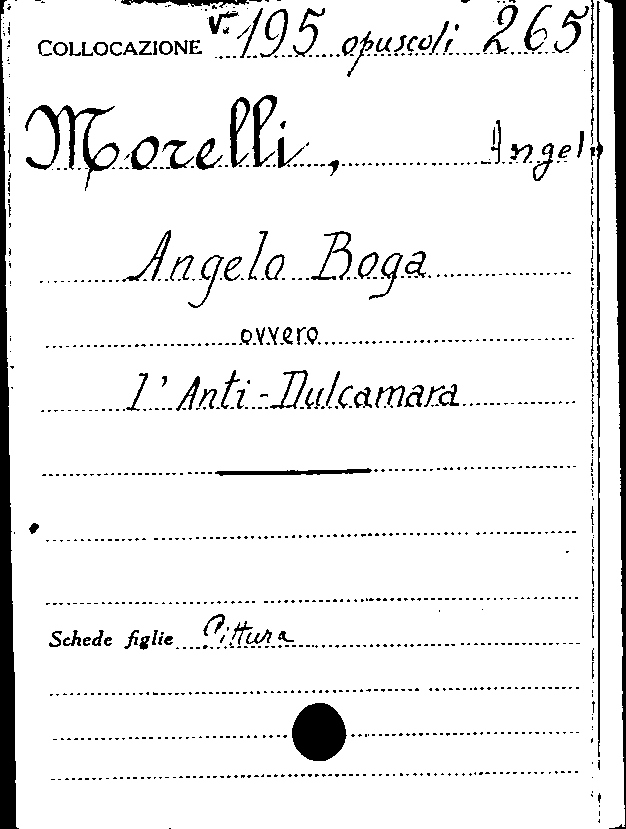 COLLOCAZIONE V. 195 opuscoli 265
Morelli, Angelo
Angelo Boga
ovvero
l'Anti-Dulcamara
Schede figlie Pittura